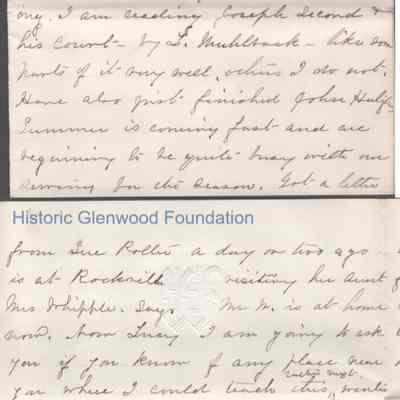 ing. I am reading Joseph Second &
his Court - by L. Muhlback - like some
parts of it very well, others I do not.
Have also just finished John Halifax
Summer is coming fast and are
beginning to be quite busy with our
sewing for the season. Got a letter
Historic Glenwood Foundation
from Sue Rollie a day or two ago -
is at Rockville visiting her Aunt
Mrs Whipple. Says Mr W. is at home
now. Now Lucy I am going to ask
you if you know of any place near
early next
you where I could teach this, winter